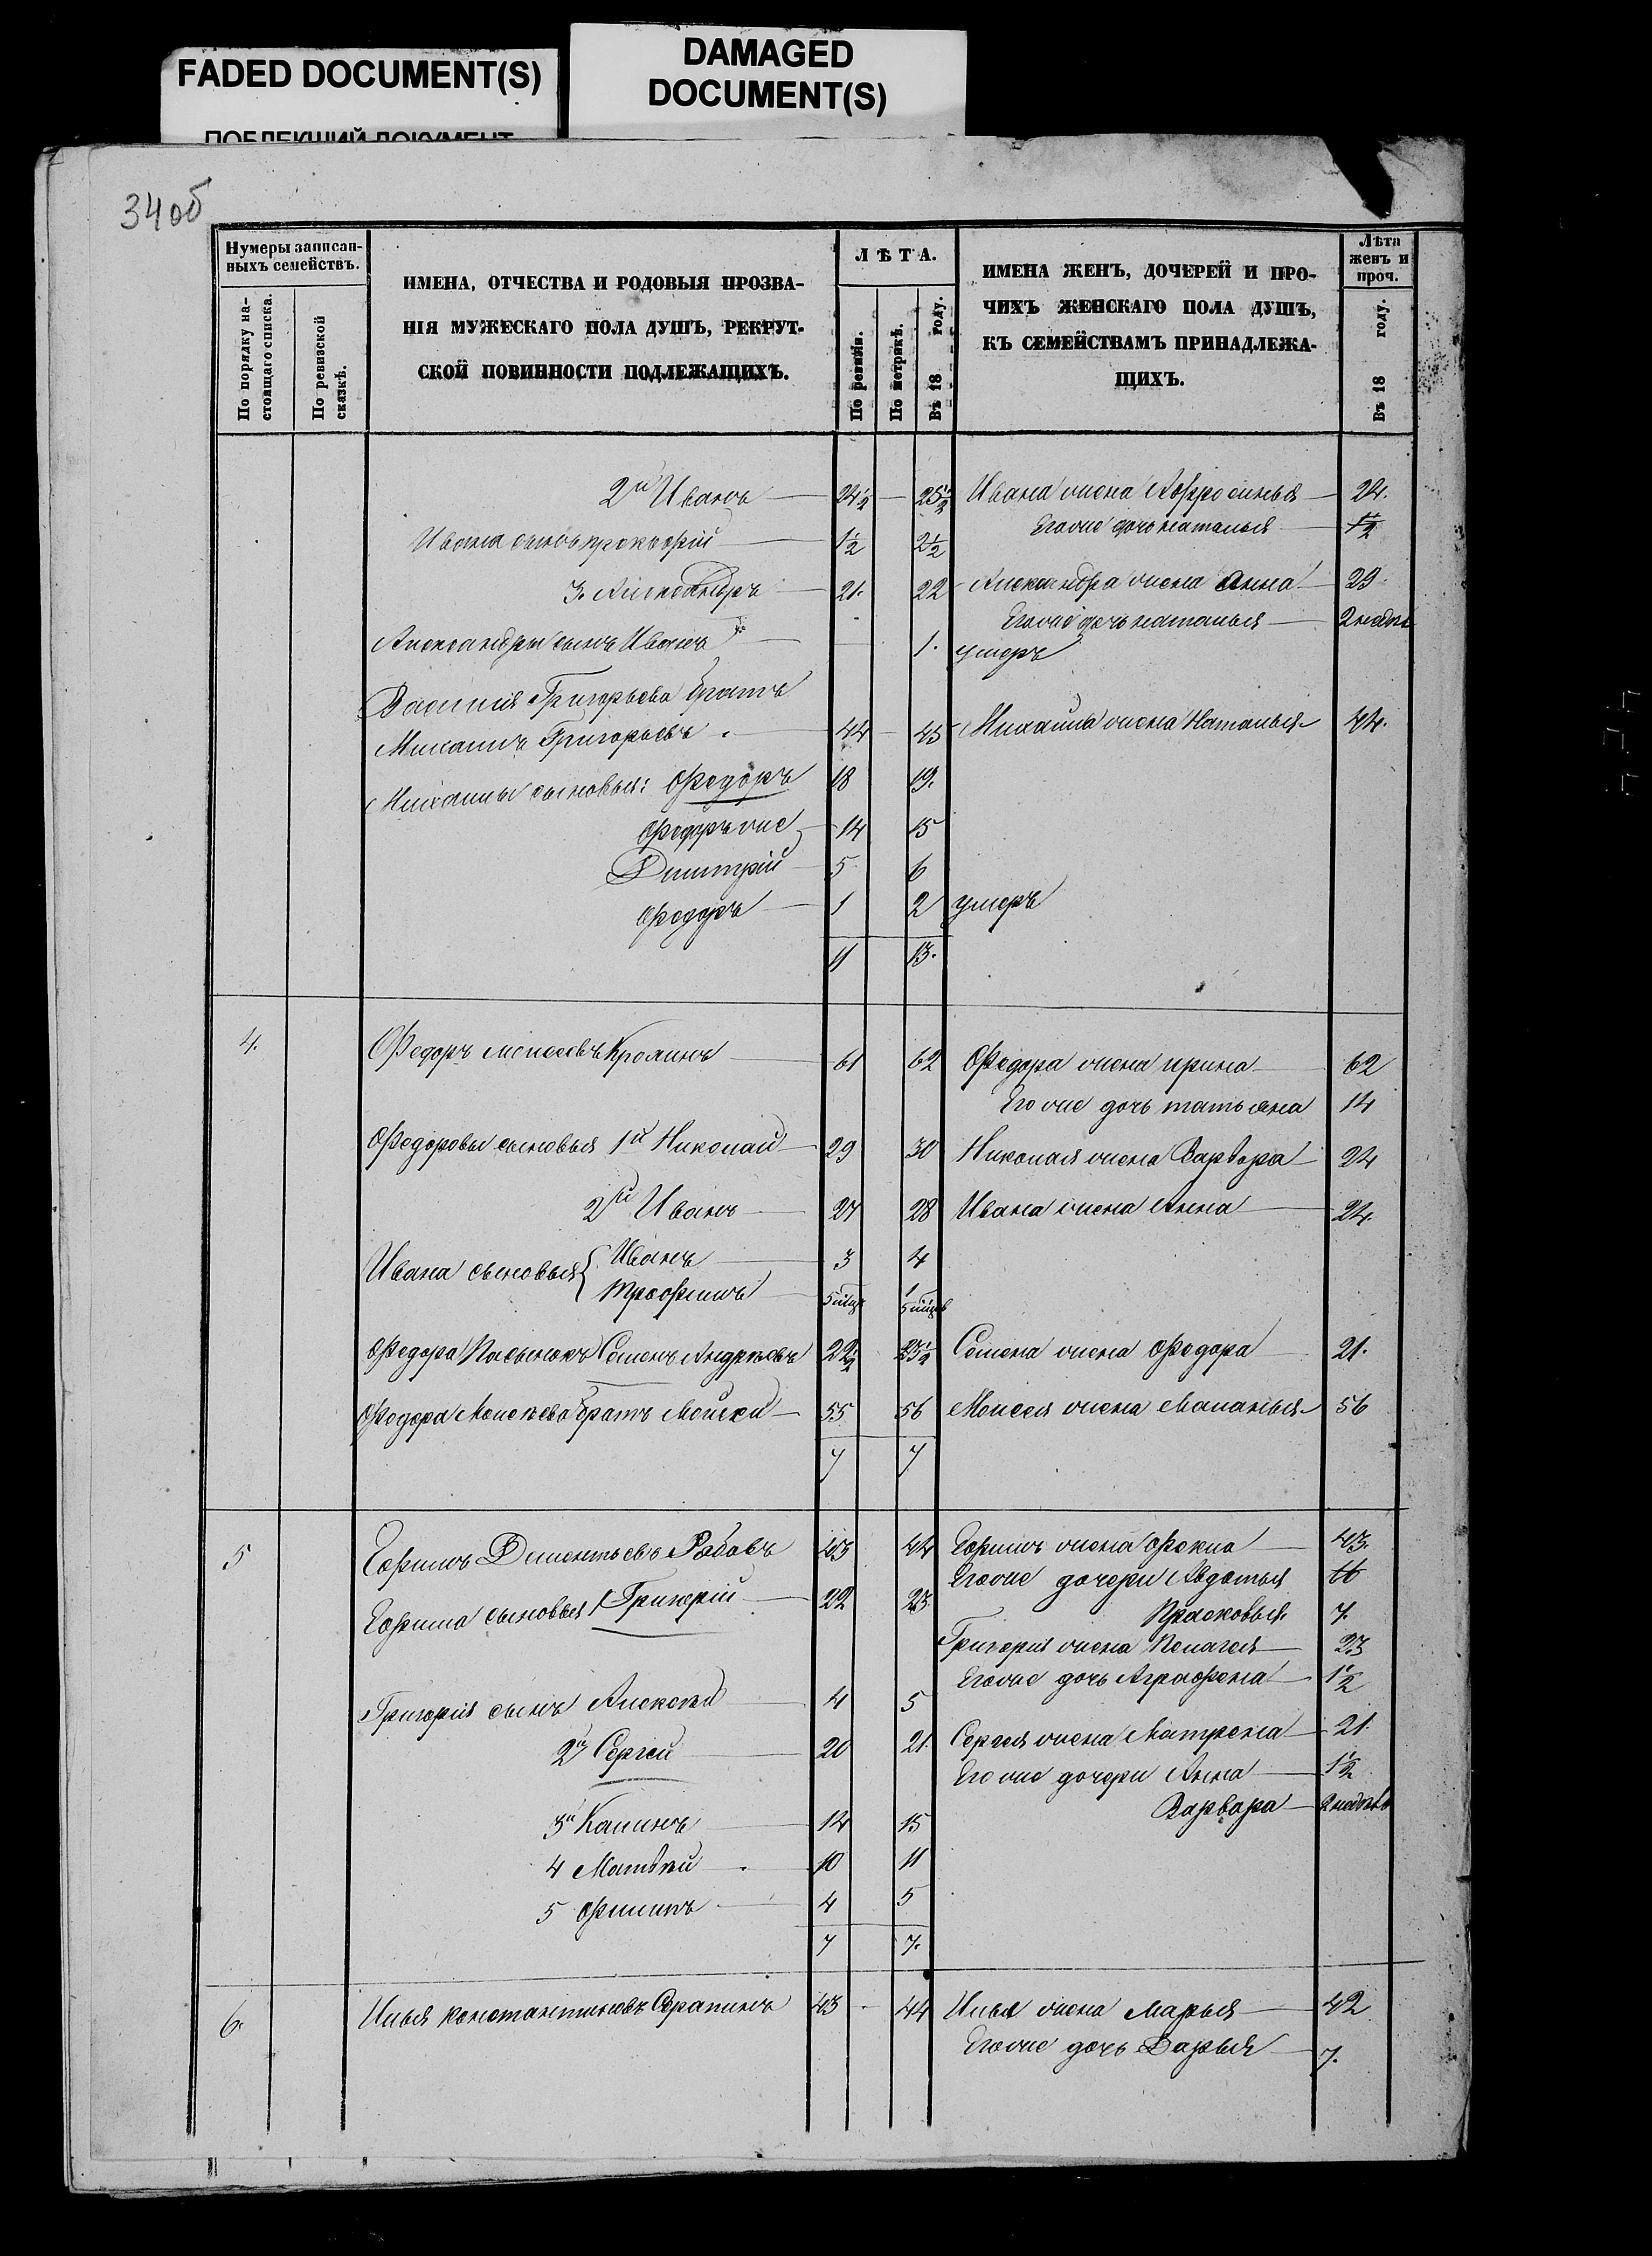 FADED DOCUMENT(S)
DAMAGED
DOCUMENT(S)
ПОБЛЕКШИЙ ДОКУМЕНТ
34об
Нумеры записан-
ныхъ семействъ.
По порядку на-
стоящаго списка.
По ревизской
сказкѣ.
ИМЕНА, ОТЧЕСТВА И РОДОВЫЯ ПРОЗВА-
НІЯ МУЖЕСКАГО ПОЛА ДУШЪ, РЕКРУТ-
СКОЙ ПОВИННОСТИ ПОДЛЕЖАЩИХЪ.
ЛѢТА.
По ревизіи.
По метрикѣ.
Въ 18 году.
ИМЕНА ЖЕНЪ, ДОЧЕРЕЙ И ПРО-
ЧИХЪ ЖЕНСКАГО ПОЛА ДУШЪ,
КЪ СЕМЕЙСТВАМЪ ПРИНАДЛЕЖА-
ЩИХЪ.
Лѣта
женъ и
проч.
Въ 18 году.
2й Иванъ 24½ 25½ Ивана жена Афросинья 24.
Егоже дочь наталья 1½
Ивана сынъ прокофій 1½ 2½
3. Александръ 21. 22 Александра жена Анна 23.
Егоже дочь наталья 2 недѣли
Александра сынъ Иванъ 1. умеръ
Василія Григорьева братъ
Михаилъ Григорьевъ 44 45 Михаила жена Наталья 44.
Михаилы сыновья: Ѳедоръ 18 19.
Ѳедоръ же 14 15
Дмитрій 5 6
Ѳедоръ 1 2 умеръ
11 13.
4. Ѳедоръ моисеевъ Кромин 61 62 Ѳедора жена ирина 62
Его же дочь татьяна 14
Ѳедоровы сыновья 1й Николай 29 30 Николая жена Варвара 24
2й Иванъ 27 28 Ивана жена Анна 24.
Ивана сыновья Иванъ 3 4
Трофимъ 5 мѣц 1 5 мѣц
Ѳедора Пасынокъ Семенъ Андреевъ 22½ 23½ Семена жена Ѳедора 21.
Ѳедора Моисѣева братъ Мойсей 55 56 Моисея жена Маланья 56
7 7
5 Ефимъ Дементьевъ Рябовъ 43 44 Ефимъ жена Ѳекла 43.
Егоже дочери Авдотья 11
Ефима сыновья 1 Григорій 22 23 Прасковья 7.
Григорія жена Пелагея 23
Егоже дочь Аграфена 1½
Григорія сынъ Алексѣй 4 5
2й Сергей 20 21. Сергея жена Матрена 21.
Его же дочери Анна 1½
Варвара 2 недѣли
3й Калинъ 14 15
4 Матвѣй 10 11
5 Филипъ 4 5
7 7.
6. Илья константиновъ 43 44 Илья жена марья 42
Егоже дочь Дарья 7.